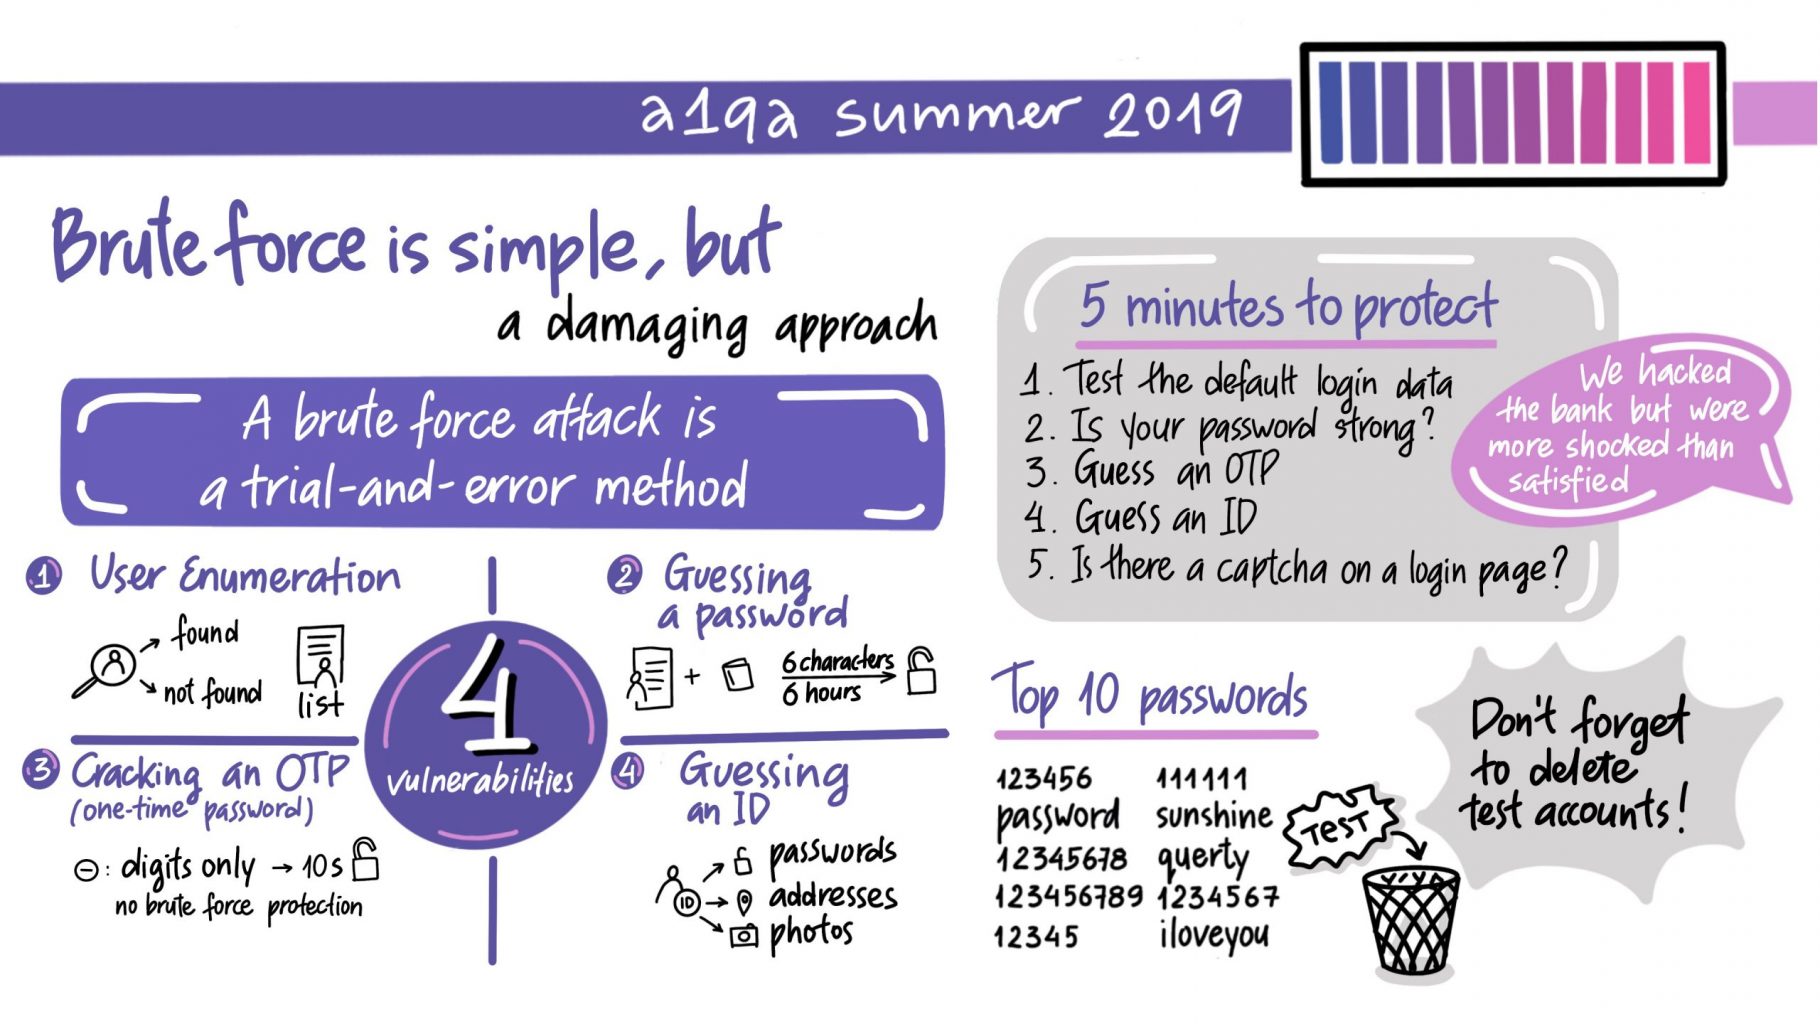 a1qa summer 2019
Brute force is simple, but
a damaging approach
A brute force attack is
a trial-and-error method
1 User Enumeration
found
not found
list
2 Guessing
a password
+
6 characters
6 hours
4
vulnerabilities
3 Cracking an OTP
(one-time password)
: digits only → 10s
no brute force protection
4 Guessing
an ID
ID
passwords
addresses
photos
5 minutes to protect
1. Test the default login data
2. Is your password strong?
3. Guess an OTP
4. Guess an ID
5. Is there a captcha on a login page?
We hacked
the bank but were
more shocked than
satisfied
Top 10 passwords
123456
password
12345678
123456789
12345
111111
sunshine
querty
1234567
iloveyou
TEST
Don't forget
to delete
test accounts!